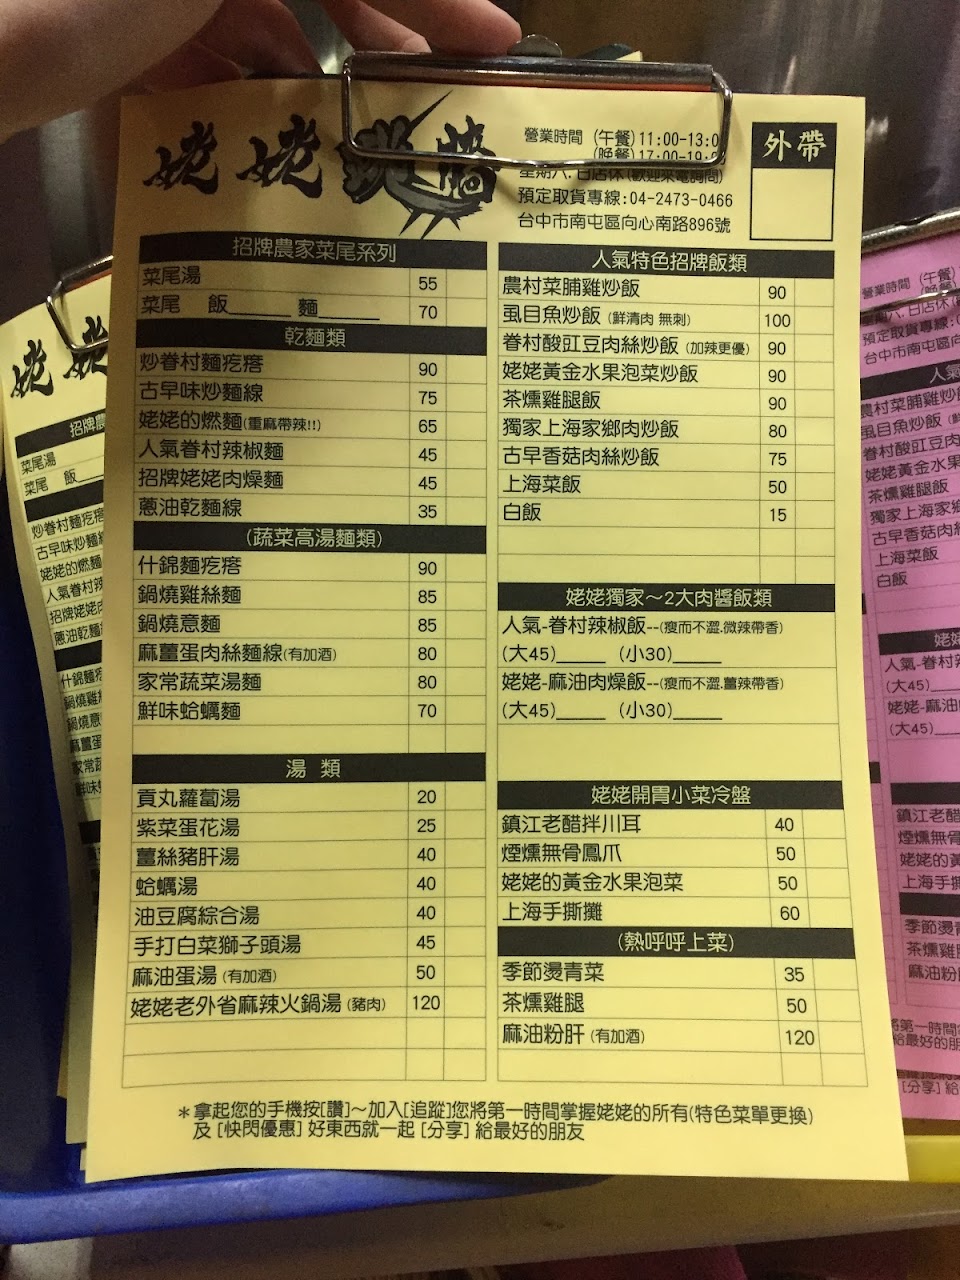 姥姥鐵牆
營業時間 (午餐)11:00-13:0
(晚餐)17:00-19:
星期六.日店休(歡迎來電詢問)
預定取貨專線:04-2473-0466
台中市南屯區向心南路896號
外帶
招牌農家菜尾系列
菜尾湯 55
菜尾 飯______ 麵______ 70
乾麵類
炒眷村麵疙瘩 90
古早味炒麵線 75
姥姥的燃麵(重麻帶辣!!) 65
人氣眷村辣椒麵 45
招牌姥姥肉燥麵 45
蔥油乾麵線 35
(蔬菜高湯麵類)
什錦麵疙瘩 90
鍋燒雞絲麵 85
鍋燒意麵 85
麻薑蛋肉絲麵線(有加酒) 80
家常蔬菜湯麵 80
鮮味蛤蠣麵 70
湯 類
貢丸蘿蔔湯 20
紫菜蛋花湯 25
薑絲豬肝湯 40
蛤蠣湯 40
油豆腐綜合湯 40
手打白菜獅子頭湯 45
麻油蛋湯 (有加酒) 50
姥姥老外省麻辣火鍋湯 (豬肉) 120
人氣特色招牌飯類
農村菜脯雞炒飯 90
虱目魚炒飯 (鮮清肉 無刺) 100
眷村酸豇豆肉絲炒飯 (加辣更優) 90
姥姥黃金水果泡菜炒飯 90
茶燻雞腿飯 90
獨家上海家鄉肉炒飯 80
古早香菇肉絲炒飯 75
上海菜飯 50
白飯 15
姥姥獨家～2大肉醬飯類
人氣-眷村辣椒飯--(瘦而不澀.微辣帶香)
(大45)_____ (小30)_____
姥姥-麻油肉燥飯--(瘦而不澀.薑辣帶香)
(大45)_____ (小30)_____
姥姥開胃小菜冷盤
鎮江老醋拌川耳 40
煙燻無骨鳳爪 50
姥姥的黃金水果泡菜 50
上海手撕攤 60
(熱呼呼上菜)
季節燙青菜 35
茶燻雞腿 50
麻油粉肝 (有加酒) 120
＊拿起您的手機按[讚]～加入[追蹤]您將第一時間掌握姥姥的所有(特色菜單更換)
及 [快閃優惠] 好東西就一起 [分享] 給最好的朋友